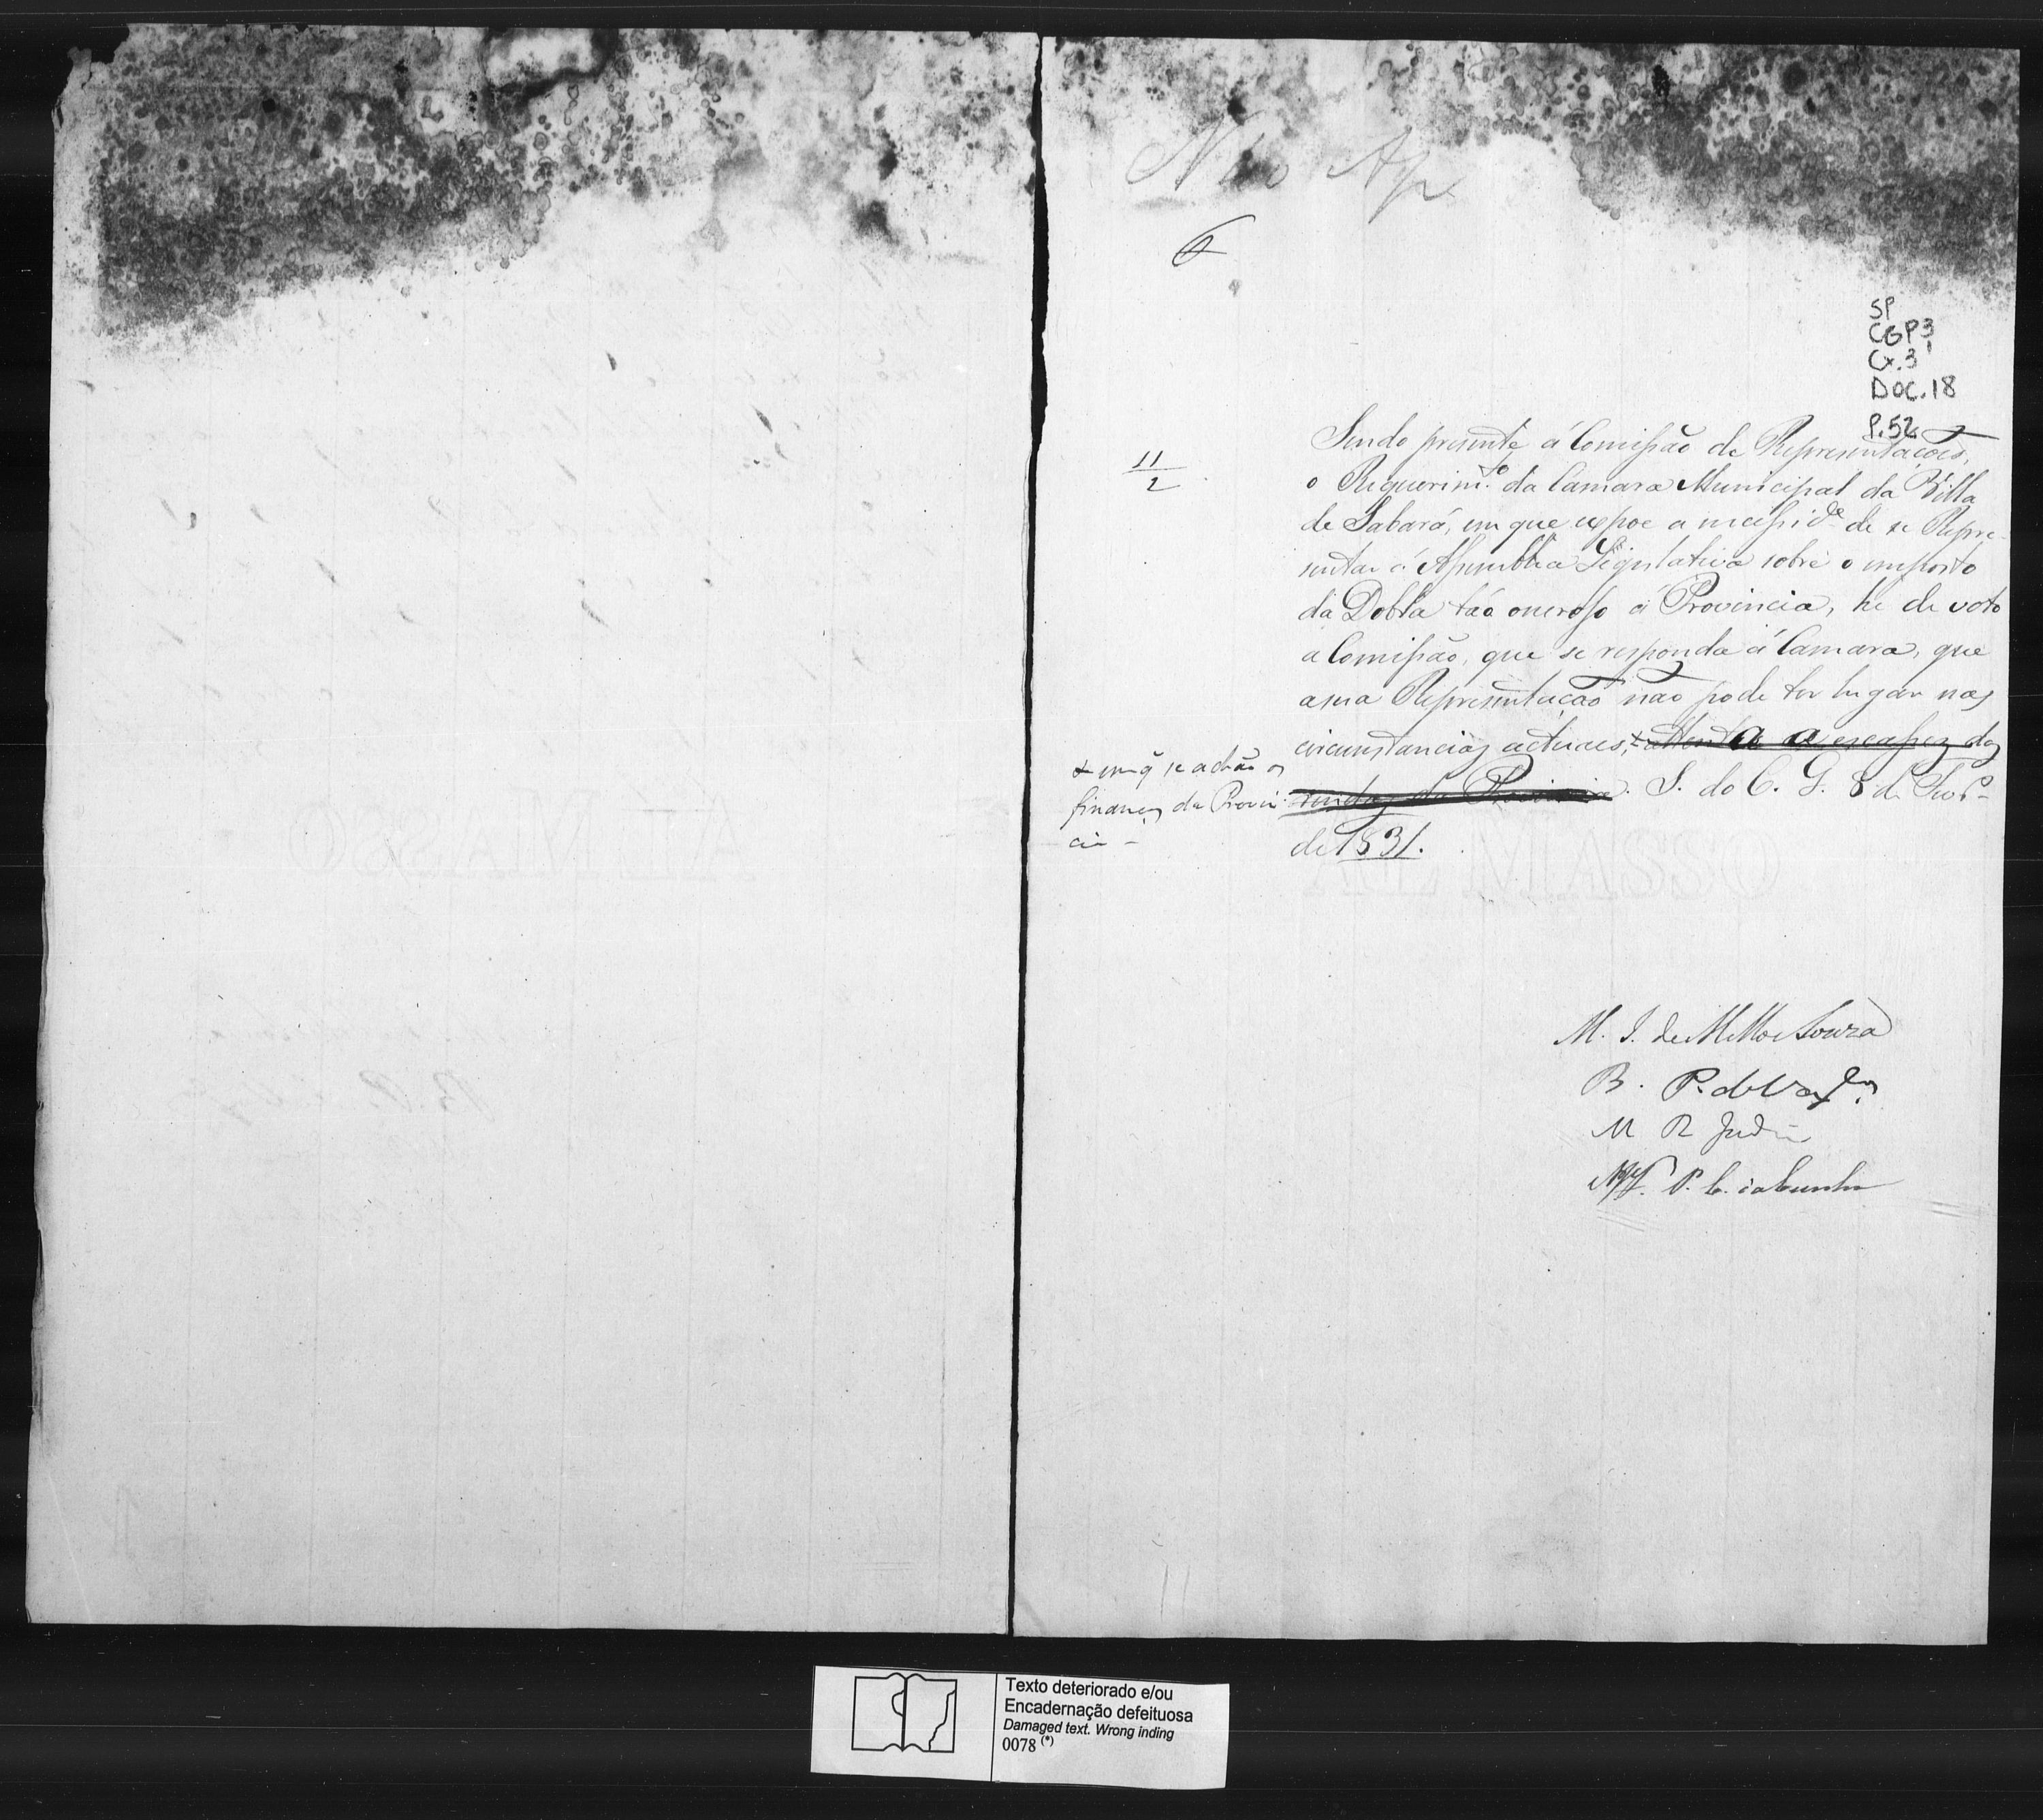 Não Ap
6
SP
CGP3
Cx.3
DOC.18
P.52
11
2
Sendo presente á Comissão de Representações,
o Requerim.to da Camara Municipal da Villa
de Sabará, em que expoe a necessid.e de se Repre-
sentar á Assemblea Legislativa sobre o imposto
da Dobla táo oneroso á Provincia, he de voto
a Comissão, que se responda á Camara, que
a sua Representação não pode ter lugar nas
circunstancias actuaes, + attenta a escassez das
rendas da Provincia. S. do C. G. 8 de
de 1831.
+ em q̃ se achão as
finanças da Provin-
cia -
AL MASSO
M. I. de Mello e Souza
B. P. de Vas.los
M R
P. C. da Cunha
Texto deteriorado e/ou
Encadernação defeituosa
Damaged text. Wrong inding
0078 (*)